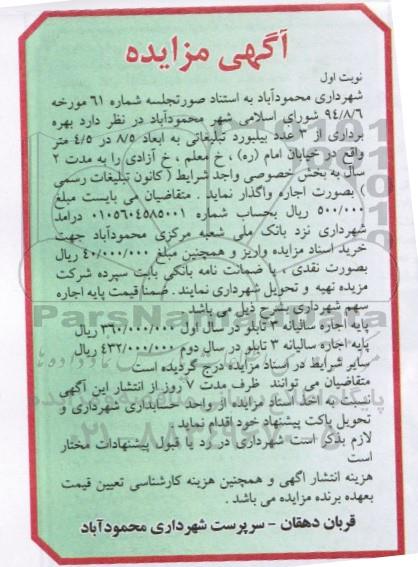 آگهی مزایده
نوبت اول
شهرداری محمودآباد به استناد صورتجلسه شماره ۶۱ مورخه
۹۴/۸/۶ شورای اسلامی شهر محمودآباد در نظر دارد بهره
برداری از ۳ عدد بیلبورد تبلیغاتی به ابعاد ۸/۵ در ۴/۵ متر
واقع در خیابان امام (ره) ، خ معلم ، خ آزادی را به مدت ۲
سال به بخش خصوصی واجد شرایط ( کانون تبلیغات رسمی
) بصورت اجاره واگذار نماید . متقاضیان می بایست مبلغ
۵۰۰/۰۰۰ ریال بحساب شماره ۰۱۰۵۶۰۴۵۸۵۰۰۱ درآمد
شهرداری نزد بانک ملی شعبه مرکزی محمودآباد جهت
خرید اسناد مزایده واریز و همچنین مبلغ ۴۰/۰۰۰/۰۰۰ ریال
بصورت نقدی ، یا ضمانت نامه بانکی بابت سپرده شرکت
مزیده تهیه و تحویل شهرداری نمایند. ضمنا قیمت پایه اجاره
سهم شهرداری بشرح ذیل می باشد
پایه اجاره سالیانه ۳ تابلو در سال اول ۳۶۰/۰۰۰/۰۰۰ ریال
پایه اجاره سالیانه ۳ تابلو در سال دوم ۴۳۲/۰۰۰/۰۰۰ ریال
سایر شرایط در اسناد مزایده درج گردیده است
متقاضیان می توانند ظرف مدت ۷ روز از انتشار این آگهی
نسبت به اخذ اسناد مزایده از واحد حسابداری شهرداری و
تحویل پاکت پیشنهاد خود اقدام نماید .
لازم بذکر است شهرداری در رد یا قبول پیشنهادات مختار
است
هزینه انتشار آگهی و همچنین هزینه کارشناسی تعیین قیمت
بعهده برنده مزایده می باشد .
قربان دهقان - سرپرست شهرداری محمودآباد